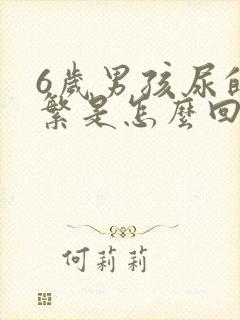 6歲男孩尿的
繁是怎麼回
何莉莉